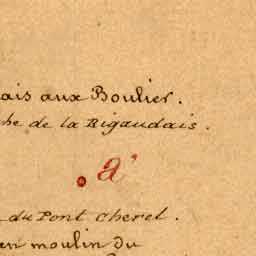 ais aux Boulier.
he de la Rigaudais.
a'
du Pont Cherel.
en moulin du